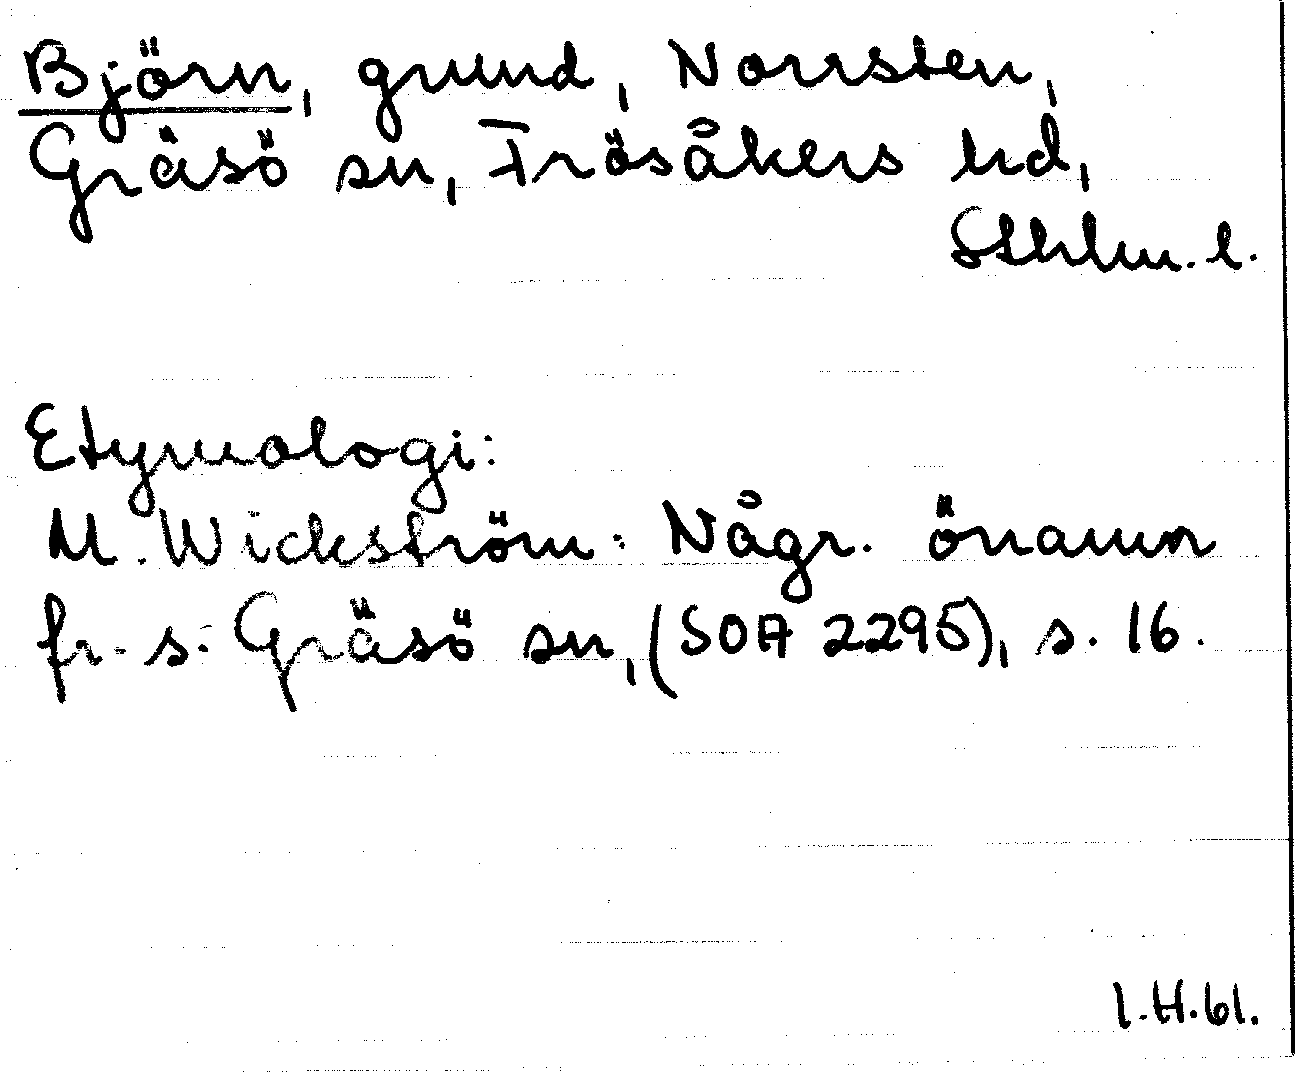 Björn, grund, Norrsten,
Gräsö sn, Frösåkers hd,
Sthlm. l.
Etymologi:
M. Wickström: Någr. önamn
fr. s. Gräsö sn, (SOA 2295), s. 16.
I.H.61.